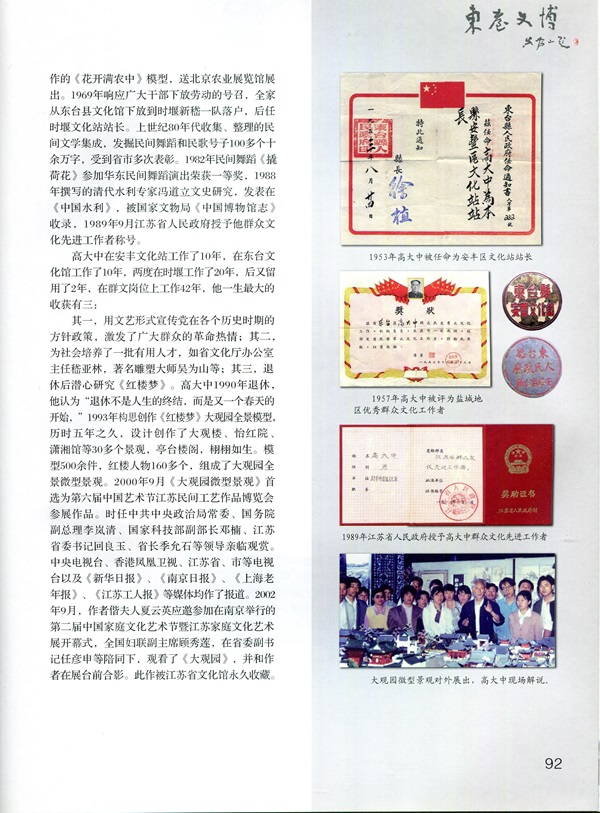 東台文博
作的《花开满农中》模型，送北京农业展览馆展
出。1969年响应广大干部下放劳动的号召，全家
从东台县文化馆下放到时堰新嵇一队落户，后任
时堰文化站站长。上世纪80年代收集、整理的民
间文学集成，发掘民间舞蹈和民歌号子100多个十
余万字，受到省市多次表彰。1982年民间舞蹈《撬
荷花》参加华东民间舞蹈演出荣获一等奖，1988
年撰写的清代水利专家冯道立文史研究，发表在
《中国水利》，被国家文物局《中国博物馆志》
收录，1989年9月江苏省人民政府授予他群众文
化先进工作者称号。
高大中在安丰文化站工作了10年，在东台文
化馆工作了10年，两度在时堰工作了20年，后又留
用了2年，在群文岗位上工作42年，他一生最大的
收获有三：
其一，用文艺形式宣传党在各个历史时期的
方针政策，激发了广大群众的革命热情；其二，
为社会培养了一批有用人才，如省文化厅办公室
主任嵇亚林，著名雕塑大师吴为山等；其三，退
休后潜心研究《红楼梦》。高大中1990年退休，
他认为“退休不是人生的终结，而是又一个春天的
开始，”1993年构思创作《红楼梦》大观园全景模型，
历时五年之久，设计创作了大观楼、怡红院、
潇湘馆等30多个景观，亭台楼阁，栩栩如生。模
型500余件，红楼人物160多个，组成了大观园全
景微型景观。2000年9月《大观园微型景观》首
选为第六届中国艺术节江苏民间工艺作品博览会
参展作品。时任中共中央政治局常委、国务院
副总理李岚清、国家科技部副部长邓楠、江苏
省委书记回良玉、省长季允石等领导亲临观赏。
中央电视台、香港凤凰卫视、江苏省、市等电视
台以及《新华日报》、《南京日报》、《上海老
年报》、《江苏工人报》等媒体均作了报道。2002
年9月，作者偕夫人夏云英应邀参加在南京举行的
第二届中国家庭文化艺术节暨江苏家庭文化艺术
展开幕式，全国妇联副主席顾秀莲，在省委副书
记任彦申等陪同下，观看了《大观园》，并和作
者在展台前合影。此作被江苏省文化馆永久收藏。
東台縣人民政府任命通知書
茲任命高大中為本
縣安豐區文化站站
長
特此通知
縣長
徐植
八月廿四日
1953年高大中被任命为安丰区文化站站长
獎狀
高大中
東台縣
安豐文化館
1957年高大中被评为盐城地
区优秀群众文化工作者
高大中
男
奖励证书
江苏省人民政府制
1989年江苏省人民政府授予高大中群众文化先进工作者
大观园微型景观对外展出，高大中现场解说。
92